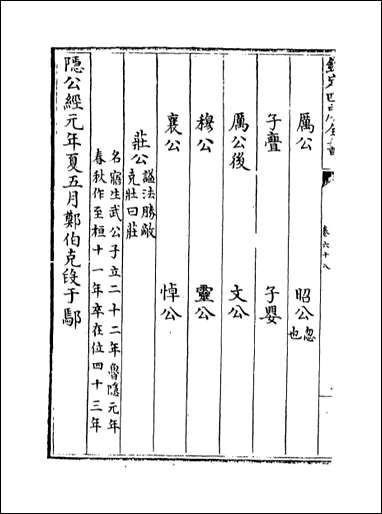 欽定四庫全書
卷六十八
厲公　昭公忽也
子亹　子嬰
厲公後　文公
穆公　靈公
襄公　悼公
莊公諡法勝敵克壯曰莊
名寤生武公子立二十二年魯隱元年
春秋作至桓十一年卒在位四十三年
隱公經元年夏五月鄭伯克段于鄢